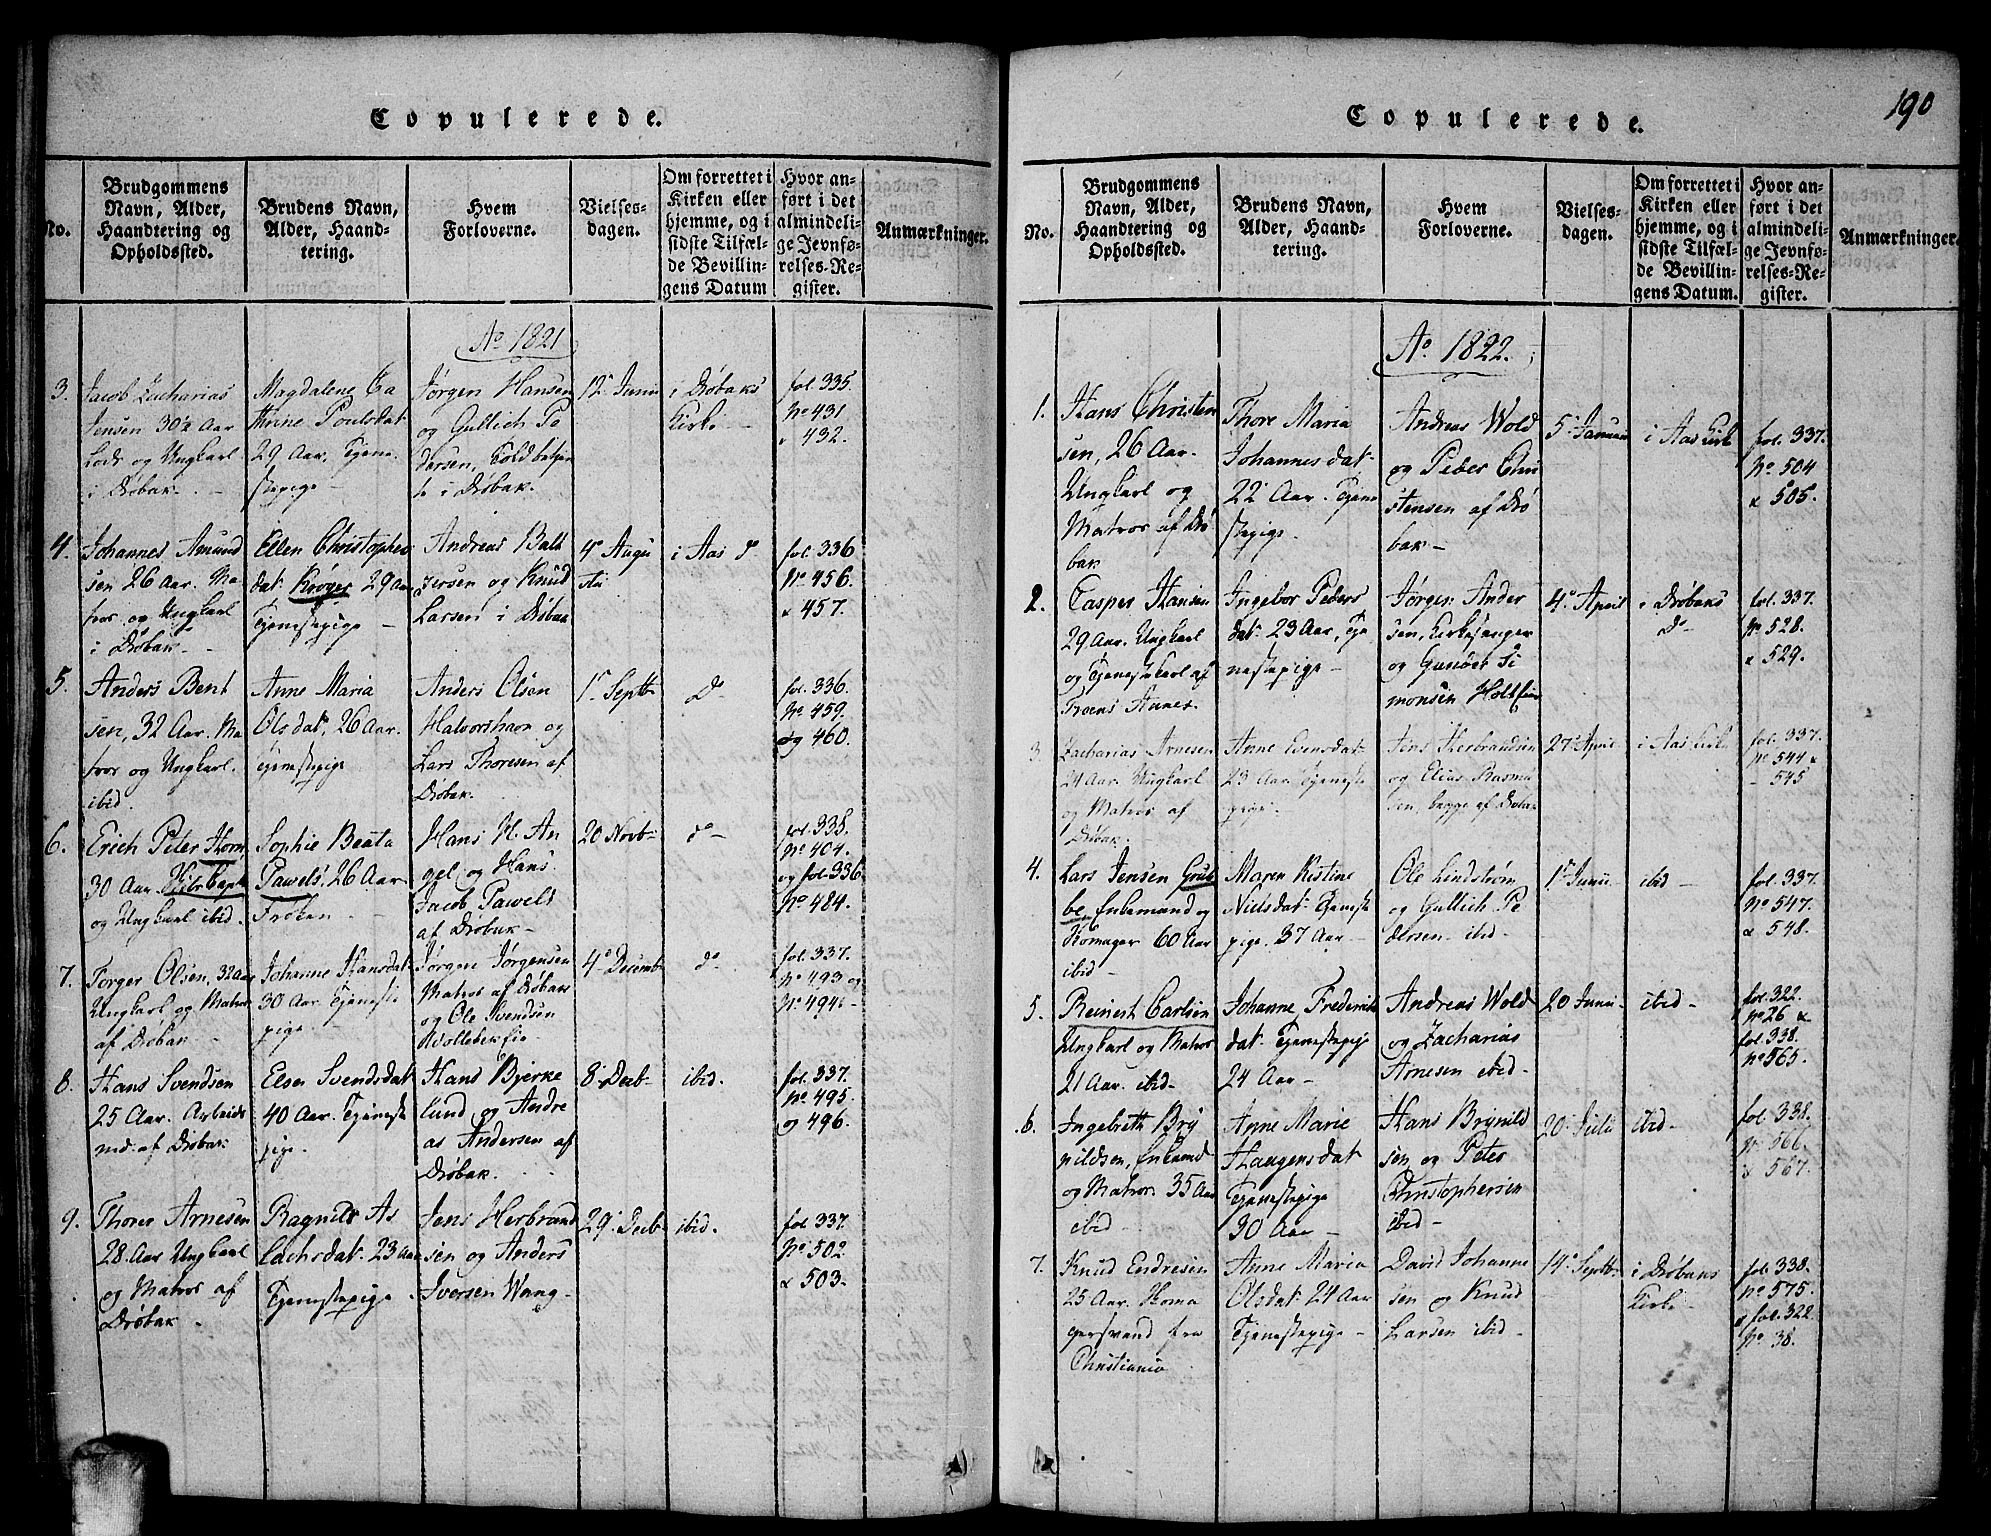 190
Copulerede.
No.
Brudgommens
Navn, Alder,
Haandtering og
Opholdssted.
Brudens Navn,
Alder, Haand-
tering.
Hvem
Forloverne.
Vielses-
dagen.
Om forrettet i
Kirken eller
hjemme, og i
sidste Tilfæl-
de Bevillin-
gens Datum
Hvor an-
ført i det
almindeli-
ge Jevnfø-
relses-Re-
gister.
Anmærkninger.
Ao 1821
3.
Jacob Zacharias
Jensen 30½ Aar
Lods og Ungkarl
i Drøbak.
Magdalene Ca
thrine Poulsdat
29 Aar, Tjene-
stepige
Jørgen Hansen
og Gullich Pe
dersen, Toldbetjen
te i Drøbak.
12te Junii
i Drøbaks
Kirke
fol. 335.
No 431
432.
4.
Johannes Amund
sen 26 Aar. Ma-
tros og Ungkarl
i Drøbak
Ellen Christophers
dat: Krøger 29 Aar
Tjenestepige
Andreas Balt
zersen og Knud
Larsen i Drøbak
4de Augu
sti
i Aas do
fol. 336
No 456.
& 457.
5.
Anders Bent
sen, 32 Aar. Ma
tros og Ungkarl.
ibid.
Anne Maria
Olsdat, 26 Aar.
Tjenestepige
Anders Olsen
Halvorshavn og
Lars Thoresen af
Drøbak.
1ste Septb
do
fol. 336.
No 459.
og 460.
6.
Erich Peter Horn,
30 Aar.
og Ungkarl ibid.
Sophie Beata
Pawels, 26 Aar
Frøken
Hans H. An
gel og Hans
Jacob Paweld
af Drøbak
20 Novb
do
fol. 338.
No 404.
og fol. 336
No 484.
7.
Torger Olsen, 32 Aar
Ungkarl og Matros
af Drøbak
Johanne Hansdat
30 Aar. Tjeneste
pige.
Jørgen Jørgensen
Matros af Drøbak
og Ole Svendsen
4de Decemb
do
fol. 337.
No 493 og
No 494.
8.
Hans Svendsen
25 Aar. Arbeids
md. af Drøbak
Elsen Svendsdat
40 Aar. Tjeneste
pige.
Hans Bjerke
lund og Andre
as Andersen af
Drøbak.
8de Decb
ibid.
fol. 337.
No 495
og 496.
9.
Thorer Arnesen
28 Aar Ungkarl
og Matros af
Drøbak
Ragnild As
lachsdat: 23 Aar
Tjenestepige
Jens Herbrand
sen og Anders
Iversen Wang
29de Decb
ibid.
fol. 337.
No 502
& 503.
Copulerede.
No.
Brudgommens
Navn, Alder,
Haandtering og
Opholdssted.
Brudens Navn,
Alder, Haand-
tering.
Hvem
Forloverne.
Vielses-
dagen.
Om forrettet i
Kirken eller
hjemme, og i
sidste Tilfæl-
de Bevillin-
gens Datum.
Hvor an-
ført i det
almindeli-
ge Jevnfø-
relses-Re-
gister.
Anmærkninger.
Ao 1822.
1.
Hans Christen
sen, 26 Aar.
Ungkarl og
Matros af Drø
bak
Thore Maria
Johannesdat
22 Aar. Tjene
stepige.
Andreas Wold
og Peder Chri
stensen af Drø
bak
5te Januarii
i Aas Kirke
fol. 337.
No 504
& 505.
2.
Casper Hansen
29 Aar. Ungkarl
og Tjenestekarl af
Ingebor Peders
dat. 23 Aar, Tje
nestepige
Jørgen Ander
sen, Kirkesanger
og Gunder Si
monsen
4de April
i Drøbaks
do
fol. 337.
No 528.
& 529.
3.
Zacharias Arnesen
24 Aar. Ungkarl
og Matros af
Drøbak
Anne Evensdat
23 Aar Tjeneste
pige.
Jens Herbrandsen
og Elias Rasmu
sen, begge af Drøbak
27de April
i Aas Kirke
fol. 337.
No 544 &
545
4.
Lars Jensen Grub
be, Enkemand og
Skomager 60 Aar
ibid
Maren Kistine
Nielsdat. Tjeneste
pige. 37 Aar
Ole Lindstrøm
og Gullich Pe
dersen ibid
1ste Junii
ibid
fol. 337.
No 547.
& 548.
5.
Reinert Carlsen
Ungkarl og Matros
21 Aar. ibid
Johanne Frederiks
dat. Tjenestepige
24 Aar
Andreas Wold
og Zacharias
Arnesen ibid
20 Junii
ibid
fol. 322.
No 26 &
fol. 338.
No 565.
6.
Ingebreth Bry
nildsen, Enkemd
og Matros 35 Aar
ibid
Anne Marie
Haugensdat
Tjenestepige
30 Aar
Hans Brynild
sen og Peter
Christophersen
ibid
20de Julii
ibid
fol. 338.
No 566
& 567.
7.
Knud Endresen
25 Aar. Skoma
gersvend fra
Christiania
Anne Maria
Olsdat: 24 Aar
Tjenestepige
David Johanne
sen og Knud
Larsen ibid
14de Septb
i Drøbaks
Kirke
fol. 338.
No 575.
& fol. 322
No 38.